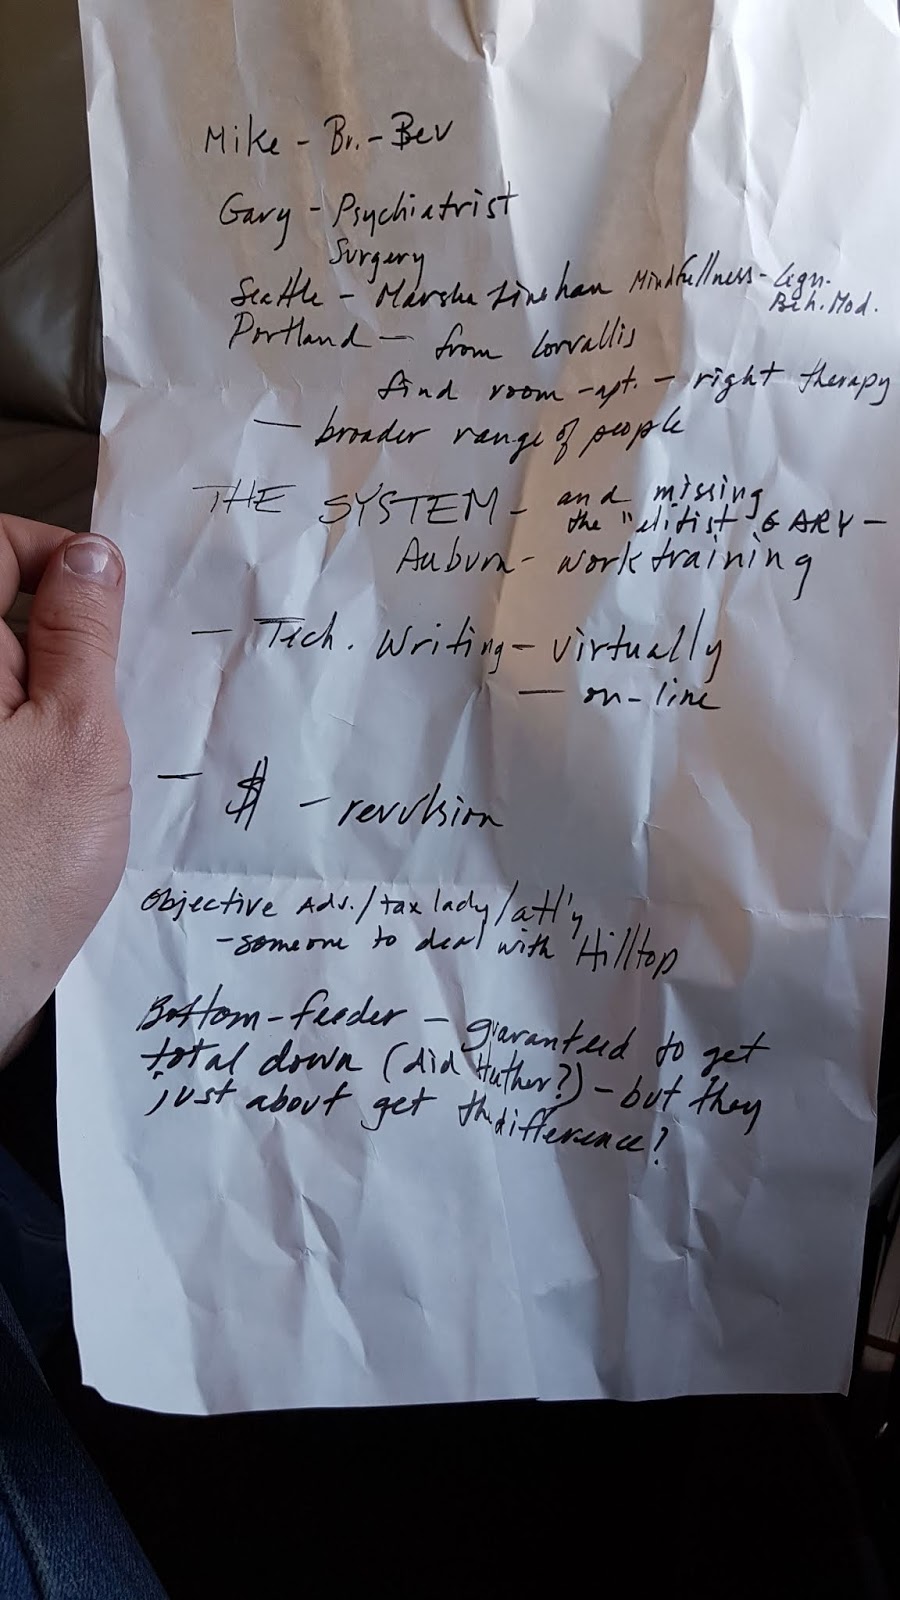 Mike - Br. - Bev
Gary - Psychiatrist
Surgery
Seattle - Marsha Linehan Mindfullness - Cgn.
Beh. Mod.
Portland - from Corvallis
find room - apt. - right therapy
- broader range of people
THE SYSTEM - and missing
the "elitist GARY -
Auburn - work training
- Tech. Writing - virtually
- on-line
- $ - revulsion
Objective Adv./tax lady/att'y
- someone to deal with Hilltop
Bottom-feeder - guaranteed to get
total down (did Huther?) - but they
just about get the difference?